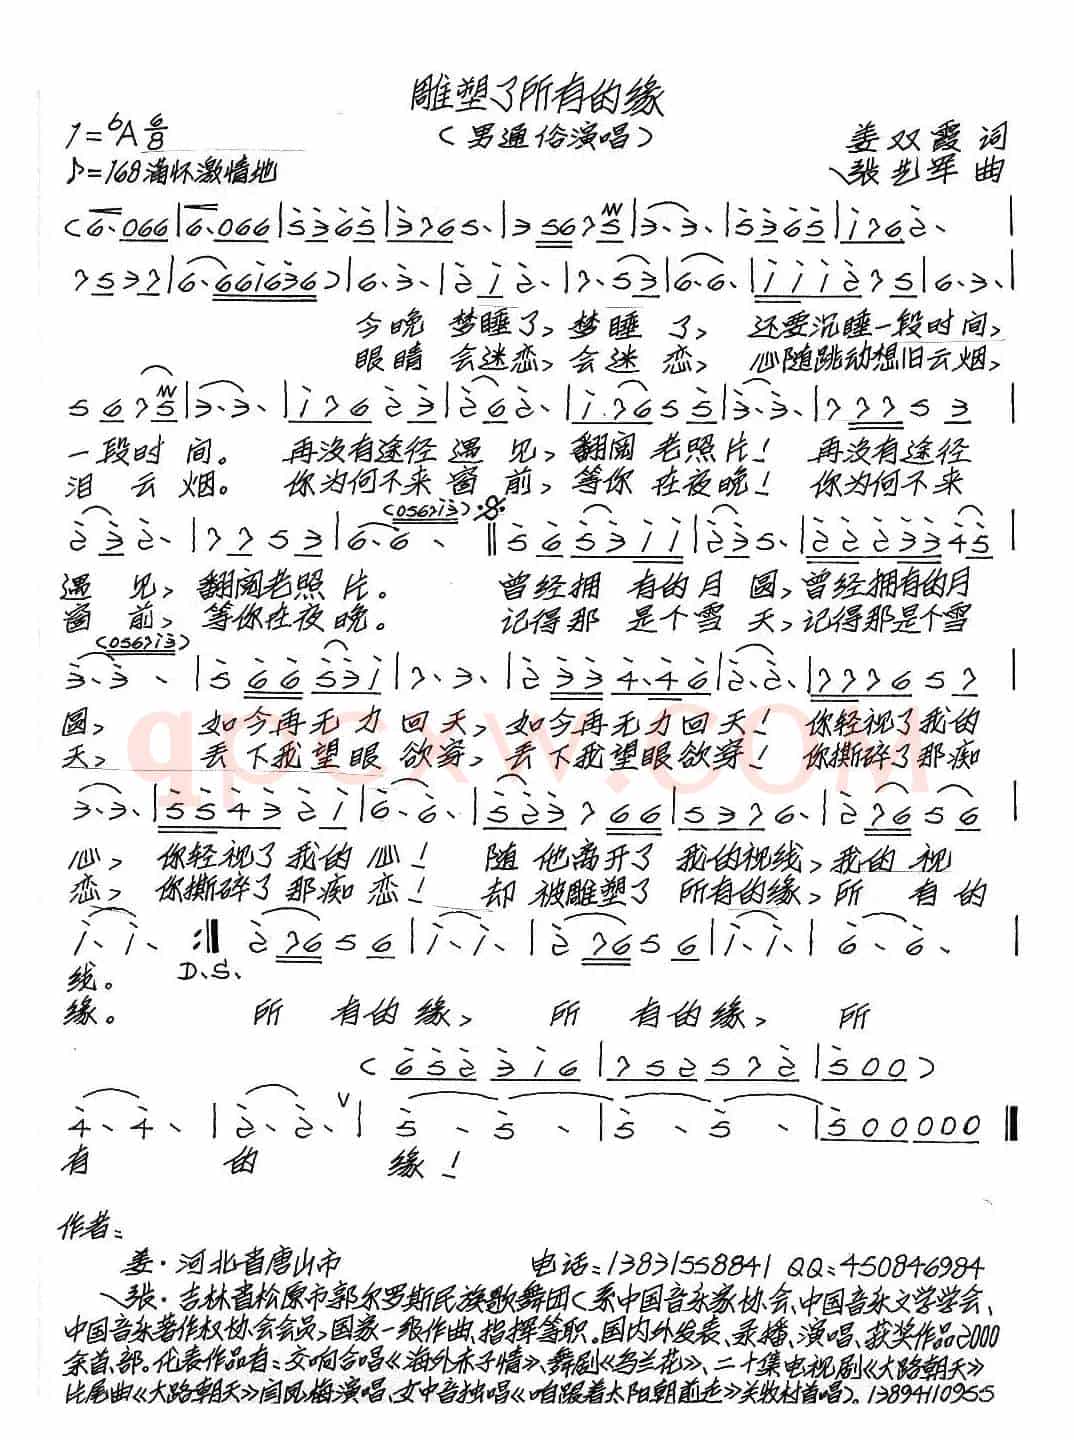 雕塑了所有的缘
(男通俗演唱)
1=♭A 6/8
姜双霞 词
♪=168满怀激情地
张艺军 曲
今晚 梦睡了, 梦睡 了, 还要沉睡一段时间,
眼睛 会迷恋, 会迷 恋, 心随跳动想旧云烟,
一段时 间。 再没有途径 遇 见, 翻阅 老照片! 再没有途径
泪 云 烟。 你为何不来 窗 前, 等你 在夜晚! 你为何不来
遇 见, 翻阅老照 片。 曾经拥 有的月 圆, 曾经拥有的月
窗 前, 等你在夜 晚。 记得那 是个雪 天, 记得那是个雪
圆, 如今再无力 回天, 如今再无力回天! 你轻视了我的
天, 丢下我望眼 欲穿, 丢下我望眼欲穿! 你撕碎了那痴
心, 你轻视了 我的 心! 随 他离开了 我的视线, 我的 视
恋, 你撕碎了 那痴 恋! 却 被雕塑了 所有的缘, 所 有的
线。 D.S.
缘。 所 有的缘, 所 有的缘, 所
有 的 缘!
作者:
姜·河北省唐山市 电话:13831558841 QQ:450846984
张·吉林省松原市郭尔罗斯民族歌舞团(系中国音乐家协会、中国音乐文学学会、
中国音乐著作权协会会员,国家一级作曲、指挥等职。国内外发表、录播、演唱、获奖作品2000
余首、部。代表作品有:交响合唱《海外赤子情》、舞剧《乌兰花》、二十集电视剧《大路朝天》
片尾曲《大路朝天》闫凤梅演唱、女中音独唱《咱跟着太阳朝前走》关牧村首唱)。13894110955
qpcxw.COM